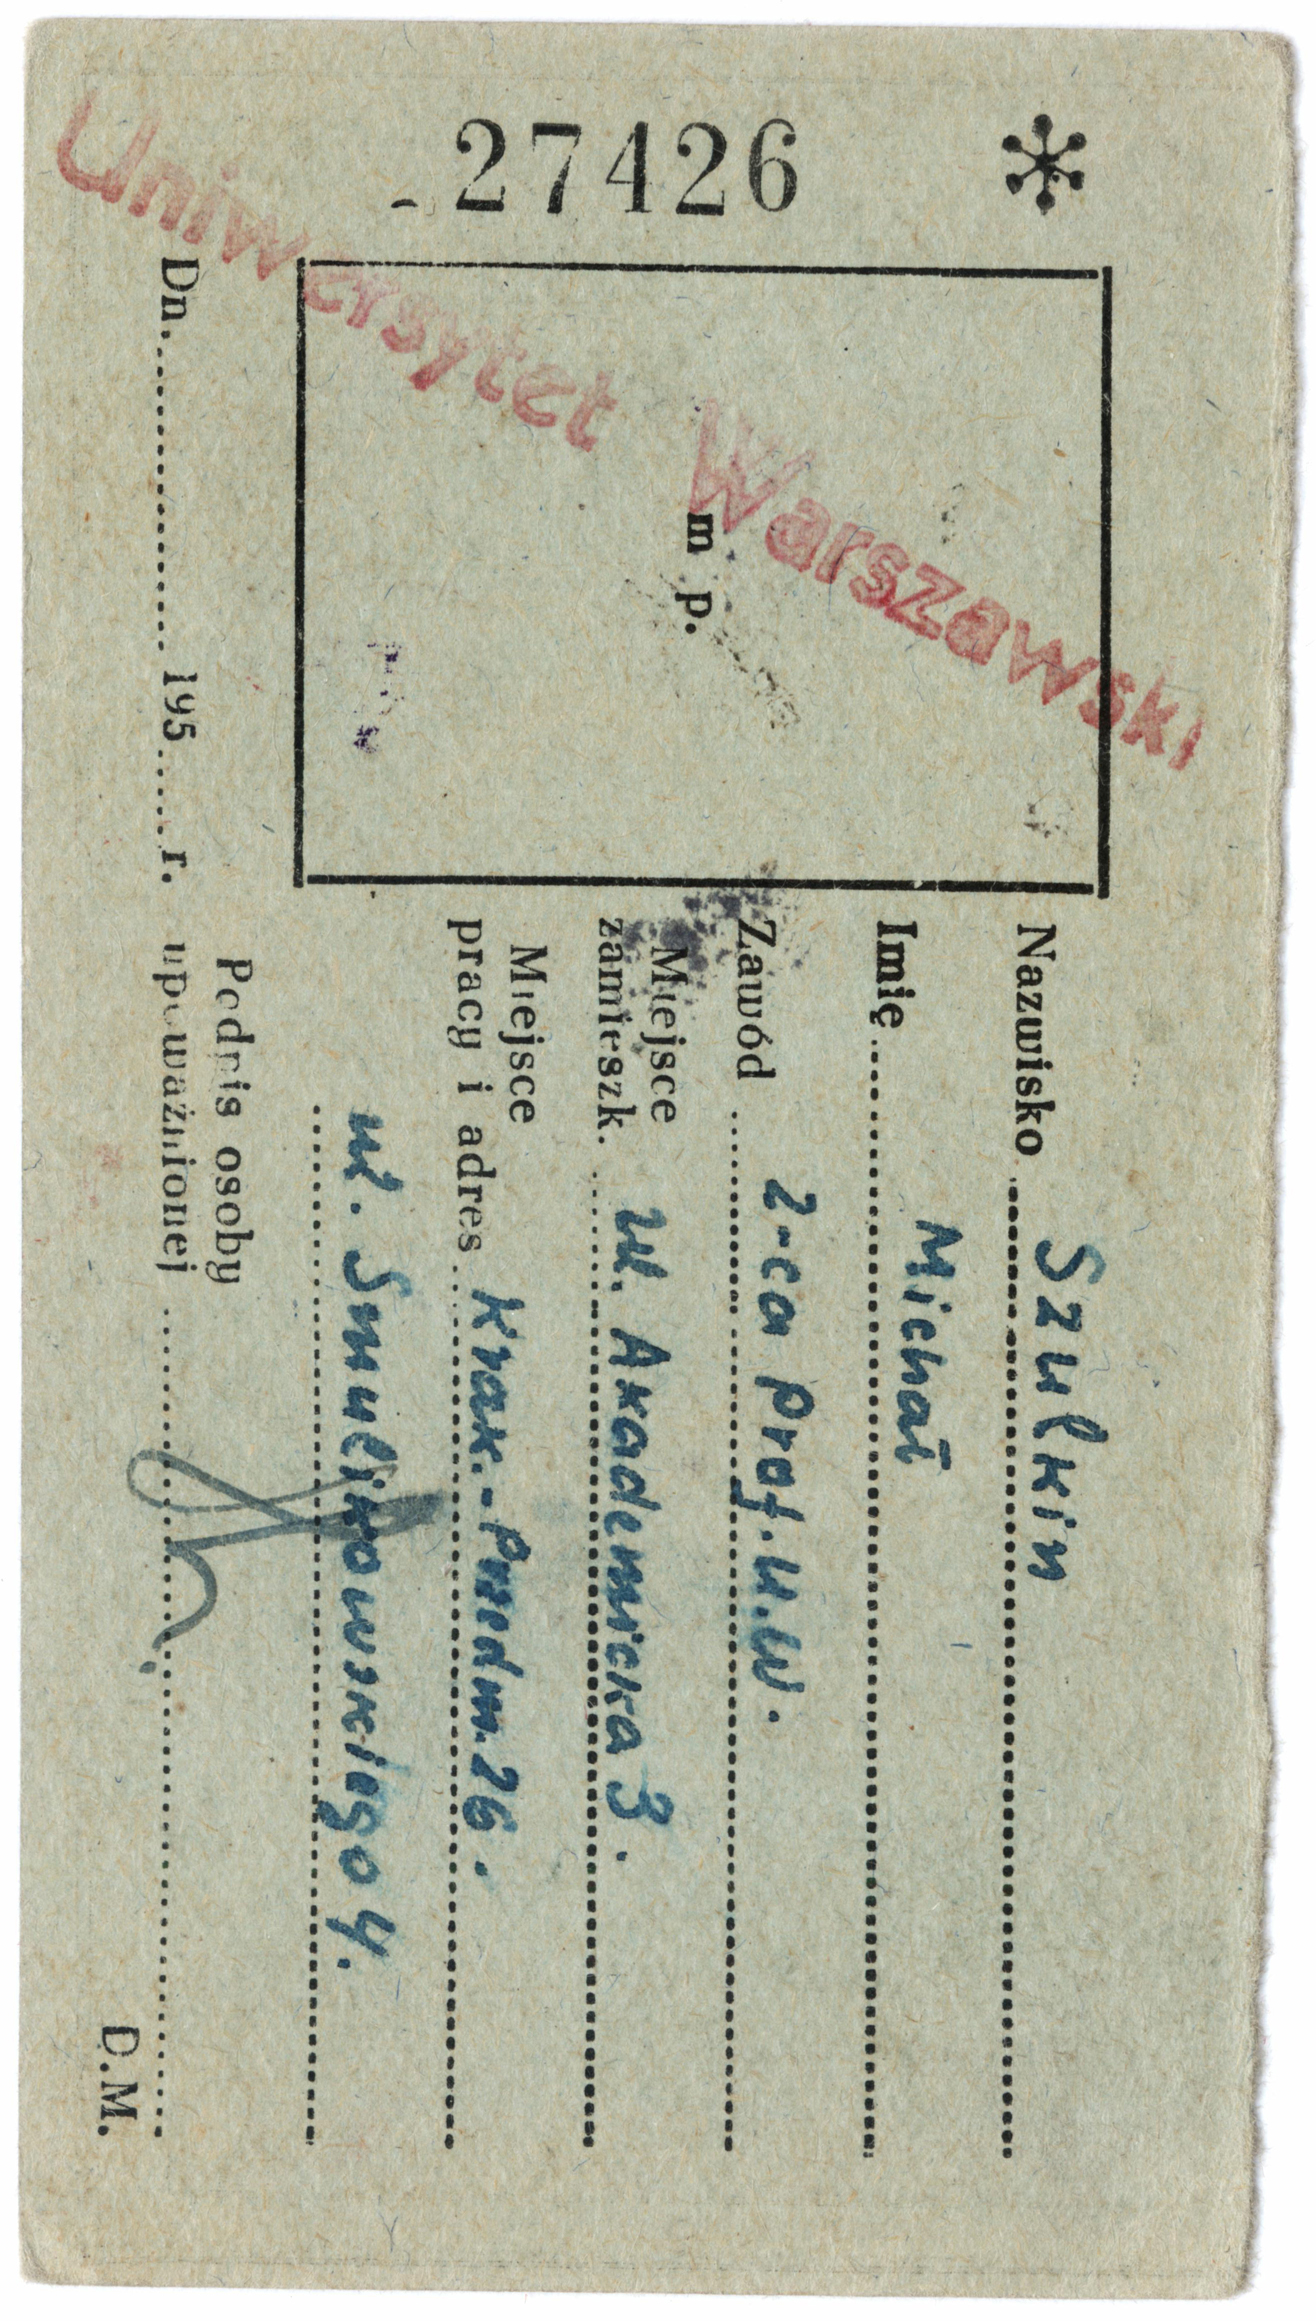 27426
Uniwersytet Warszawski
m. p.
Nazwisko Szulkin
Imię Michał
Zawód z-ca prof. U.W.
Miejsce
zamieszk. ul. Akademicka 3.
Miejsce
pracy i adres Krak.-Przedm. 26.
ul. Smulikowskiego 4.
Dn. 195 r.
Podpis osoby
upoważnionej
D.M.